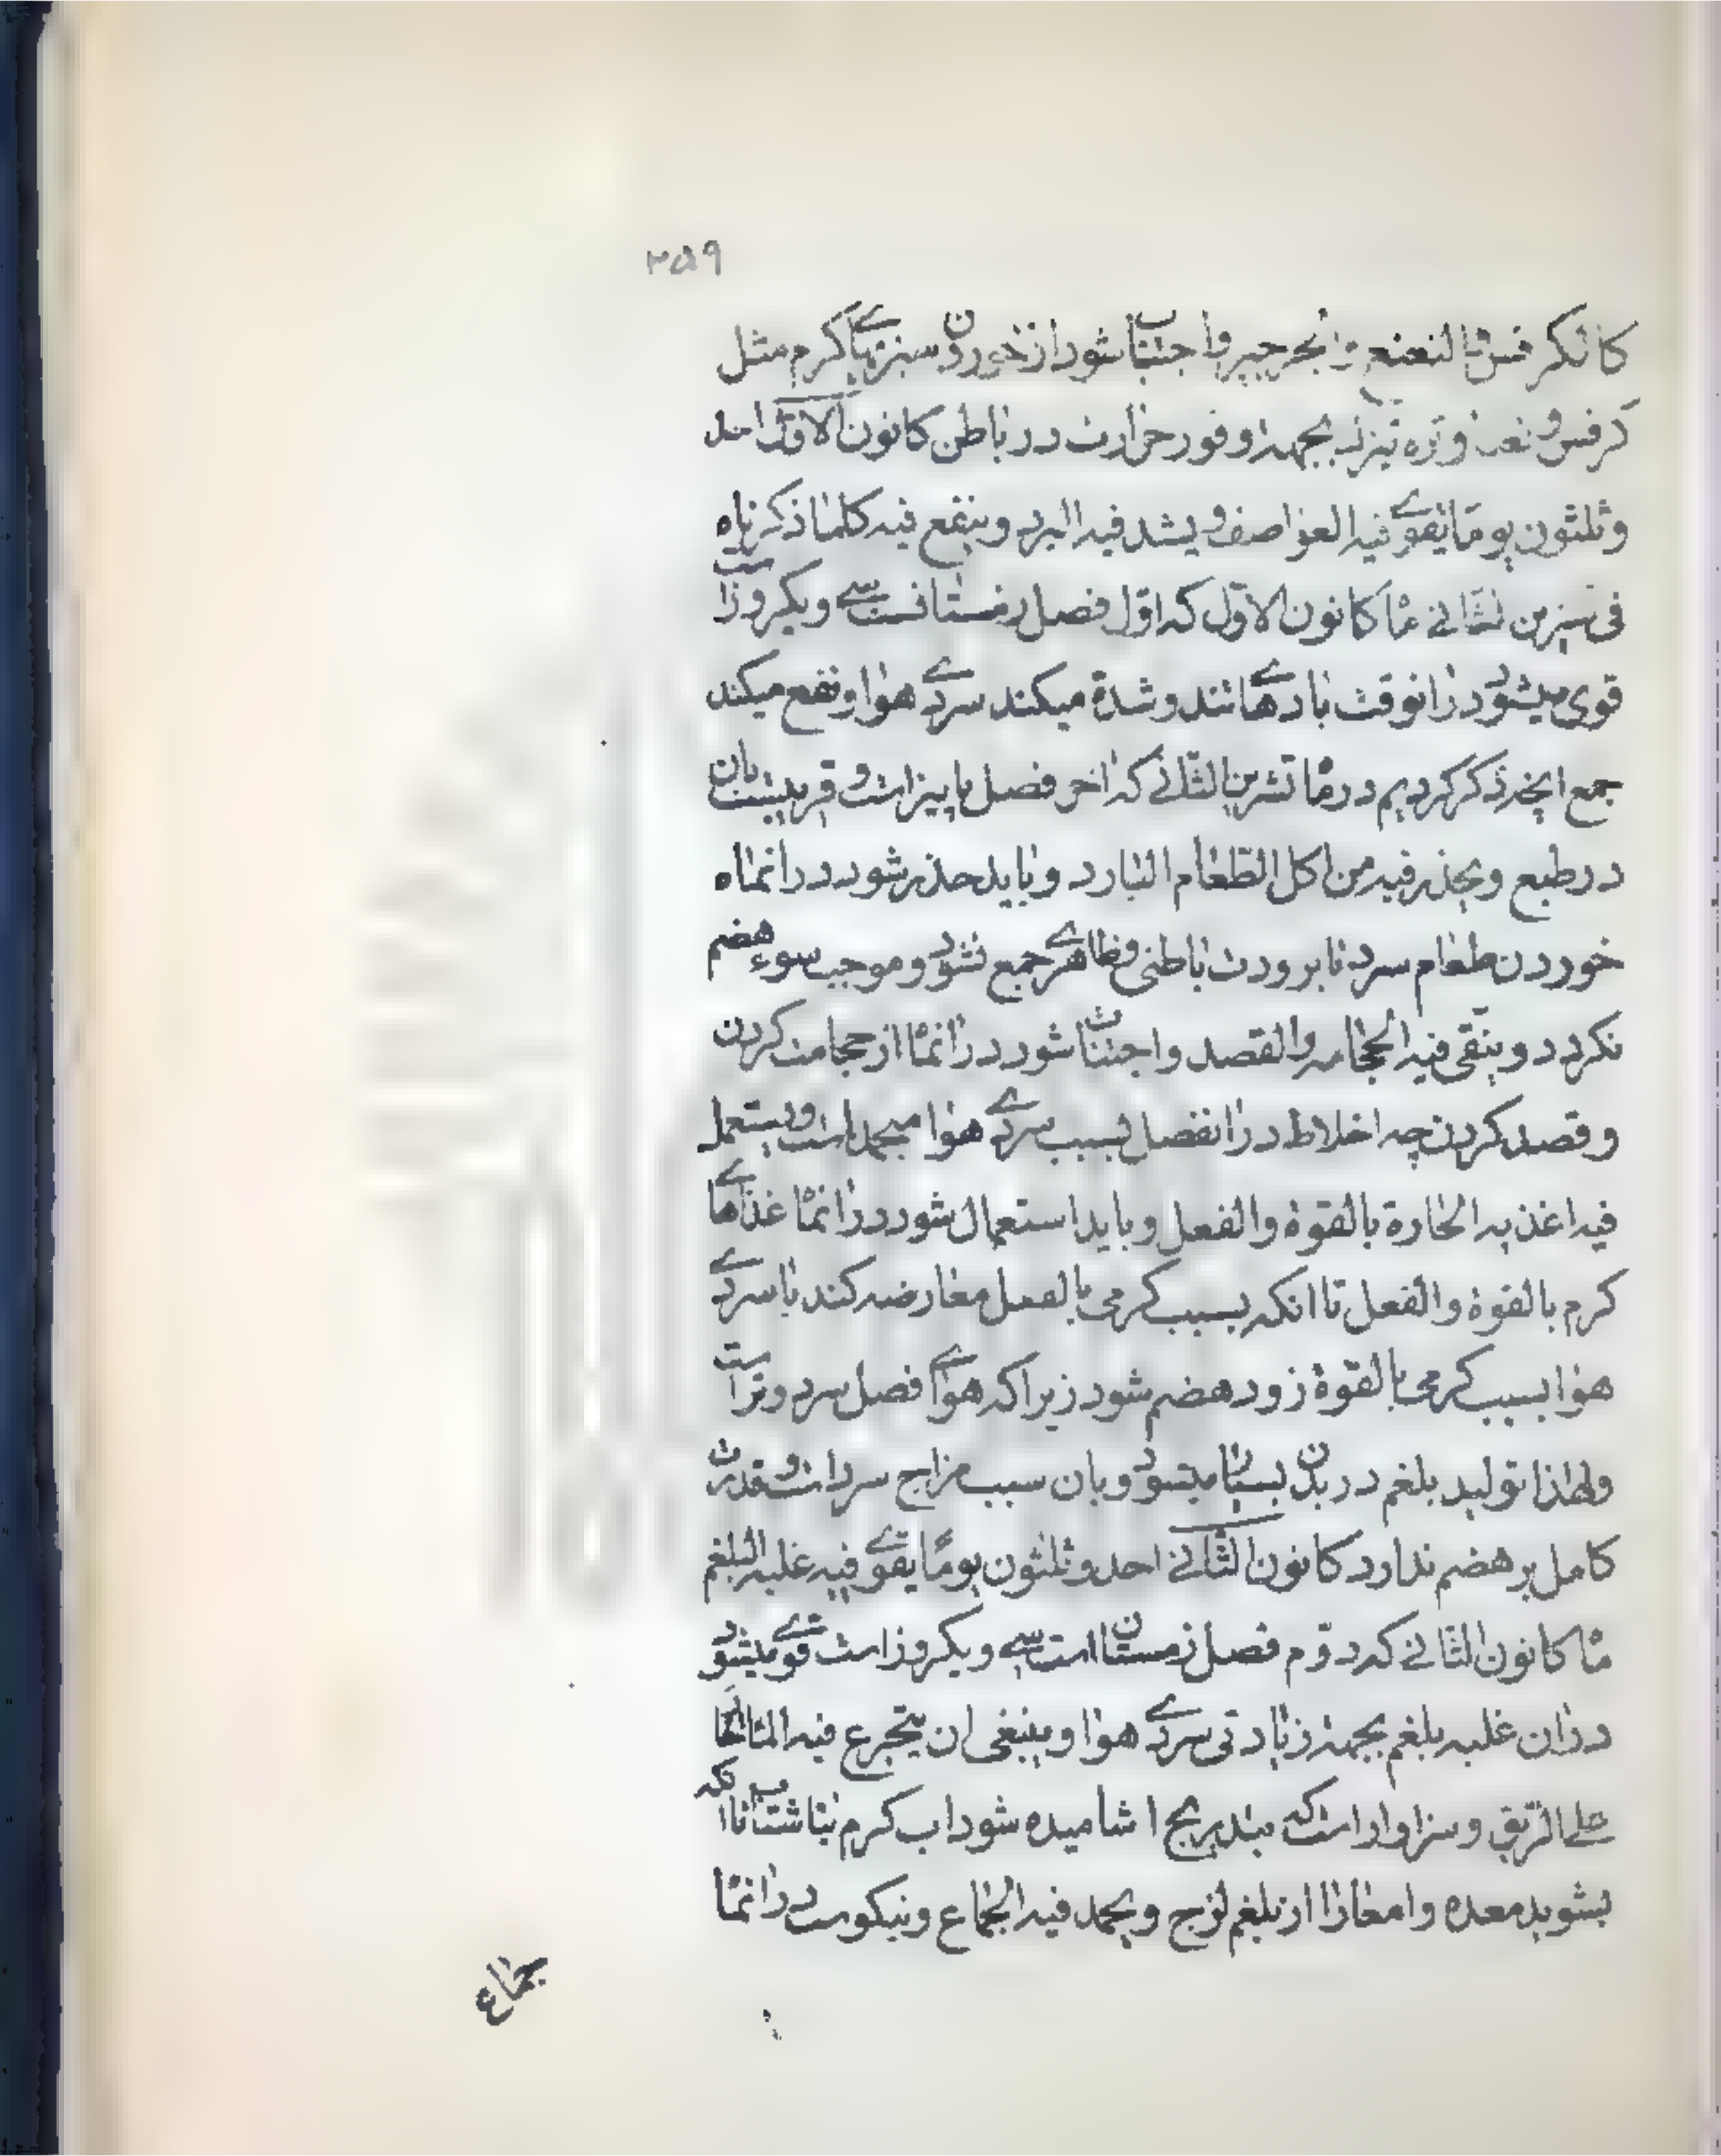 ۳۵۹
کالکرفس والنعنع والجرجیر واجتناب شود از خوردن سبزیهای کرم مثل
کرفس و نعنع و تره تیزک بجهة وفور حرارت در باطن کانون الاوّل احد
وثلثون یومًا یقوی فیه العواصف ویشد فیه البرد وینفع فیه کلما ذکرناه
فی تشرین الثانی ماه کانون الاوّل که اوّل فصل زمستانست سی ویکروز است
قوی میشود در انوقت بادهای تند و شدة میکند سردی هوا و نفع میکند
جمیع انچه ذکر کردیم در ماه تشرین الثانی که اخر فصل پاییز است و قریبست بان
در طبع ویحذر فیه من اکل الطعام البارد و باید حذر شود در انماه
خوردن طعام سرد تا برودت باطنی و ظاهری جمع نشود و موجب سوء هضم
نکردد ویتقی فیه الحجامه والفصد واجتناب شود در انماه از حجامت کردن
و فصد کردن چه اخلاط در انفصل بسبب سردی هوا منجمد است ویستعمل
فیه اغذیه الحارة بالقوة والفعل و باید استعمال شود در انماه غذاهای
کرم بالقوة والفعل تا انکه بسبب کرمی بالفعل معارضه کند با سردی
هوا بسبب کرمی بالقوة زود هضم شود زیرا که هوای فصل سرد و تر است
ولهذا تولید بلغم در بدن بسیار میشود و بان سبب مزاج سرد است و قدرت
کامل بر هضم ندارد کانون الثانی احد وثلثون یومًا یقوی فیه غلبه البلغم
ماه کانون الثانی که دوّم فصل زمستان است سی ویکروز است قوی میشود
در ان غلبه بلغم بجهة زیادتی سردی هوا وینبغی ان یتجرع فیه الماء الحار
علی الریق و سزاوار است که بتدریج اشامیده شود اب کرم بناشتاب تا انکه
بشوید معده و امعا را از بلغم لزج ویحمد فیه الجماع و نیکوست در انماه
جماع